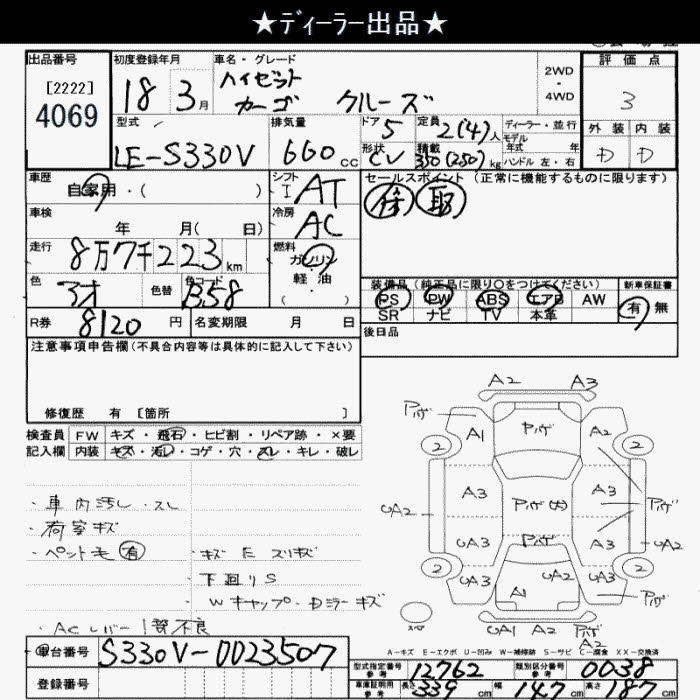 ★ディーラー出品★
出品番号
[2222]
4069
初度登録年月
18 3月
車名・グレード
ハイゼット
カーゴ クルーズ
2WD
・
4WD
評価点
3
外装 内装
D D
型式
LE-S330V
排気量
660cc
ドア
5
形状
CV
定員
2(4)人
積載
350(250)kg
ディーラー・並行
モデル
年式 年
ハンドル 左・右
車歴
自家用・( )
シフト
I AT
車検
年 月( 日)
冷房
AC
走行
8万7千223km
燃料
ガソリン
・
軽油
色
シオ
色替
色コード
B58
R券
8120円
名変期限 月 日
セールスポイント (正常に機能するものに限ります)
装備品 (純正品に限り○をつけてください)
PS PW ABS エアB AW
SR ナビ TV 本革
新車保証書
有 無
後日品
注意事項申告欄(不具合内容等は具体的に記入して下さい)
修復歴 有 [箇所 ]
検査員 FW キズ・飛石・ヒビ割・リペア跡・×要
記入欄 内装 キズ・汚レ・コゲ・穴・スレ・キレ・破レ
・車内汚し・スレ
・荷室キズ
・ペット毛 有
・キズ E スリキズ
下廻りS
Wキャップ・Dミラーキズ
・ACレバー1部不良
A2 A3
Pハゲ
A1
Pハゲ
A2
2
2
A3
Pハゲ(大)
A3
Pハゲ
UA2
UA3
Pハゲ
A3
UA2
2
2
UA3
A1
UA2
UA3
Pハゲ
UA1 A2 Pハゲ
A2
A-キズ E-エクボ U-凹み W-補修跡 S-サビ C-腐食 XX-交換済
車台番号
S330V-0023507
登録番号
型式指定番号
参考
12762
類別区分番号
参考
0038
車庫証明用
参考
長さ 339cm 幅 147cm 高さ 187cm